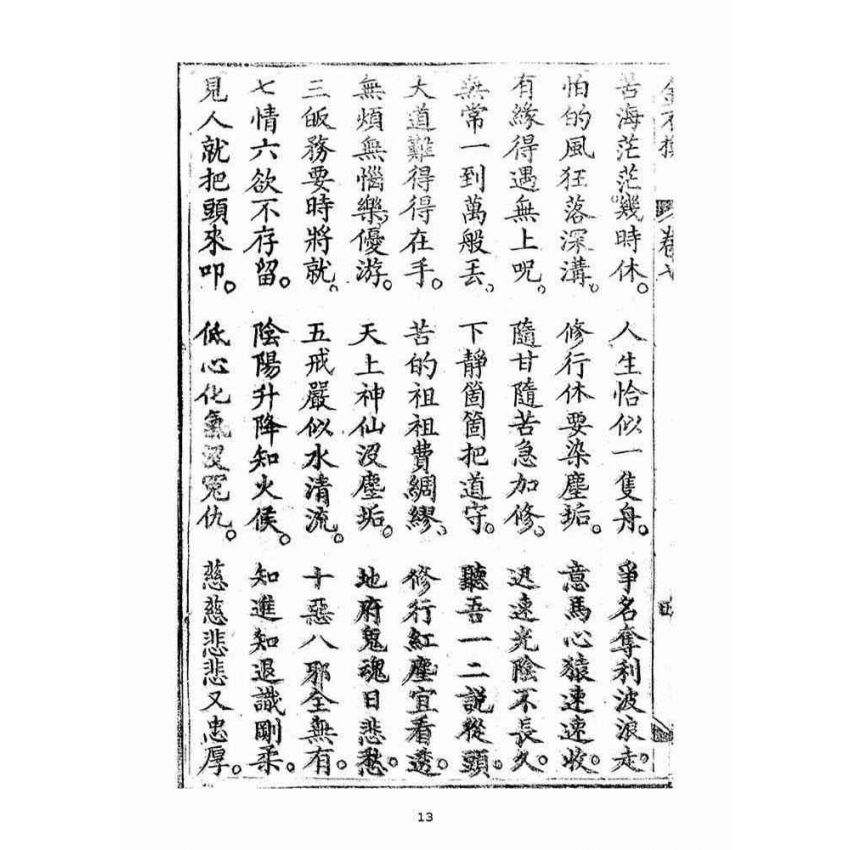 金不 卷
苦海茫茫幾時休。人生恰似一隻舟。爭名奪利波浪走。
怕的風狂落深溝。修行休要染塵垢。意馬心猿速速收。
有緣得遇無上呪。隨甘隨苦急加修。迅速光陰不長久。
無常一到萬般丟。下靜箇箇把道守。聽吾一二説從頭。
大道難得得在手。苦的祖祖費綢繆。修行紅塵宜看透。
無煩無惱樂優游。天上神仙沒塵垢。地府鬼魂日悲愁。
三皈務要時將就。五戒嚴似水清流。十惡八邪全無有。
七情六欲不存留。陰陽升降知火候。知進知退識剛柔。
見人就把頭來叩。低心化氣沒冤仇。慈慈悲悲又忠厚。
13